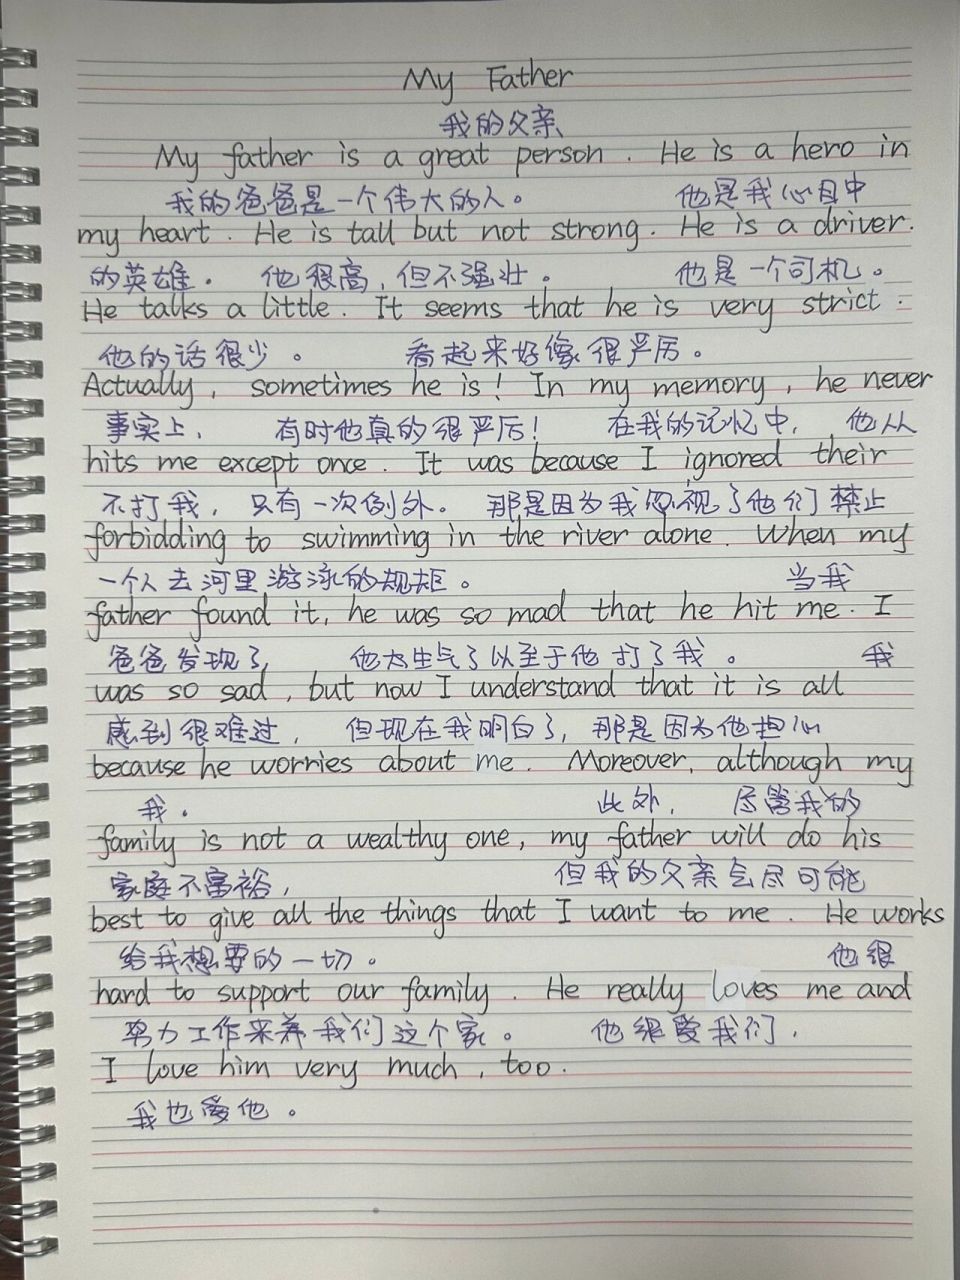 My Father
我的父亲
My father is a great person. He is a hero in
我的爸爸是一个伟大的人。 他是我心目中
my heart. He is tall but not strong. He is a driver.
的英雄。 他很高,但不强壮。 他是一个司机。
He talks a little. It seems that he is very strict.
他的话很少。 看起来好像很严厉。
Actually, sometimes he is! In my memory, he never
事实上, 有时他真的很严厉! 在我的记忆中, 他从
hits me except once. It was because I ignored their
不打我, 只有一次例外。 那是因为我忽视了他们禁止
forbidding to swimming in the river alone. When my
一个人去河里游泳的规矩。 当我
father found it, he was so mad that he hit me. I
爸爸发现了, 他太生气了以至于他打了我。 我
was so sad, but now I understand that it is all
感到很难过, 但现在我明白了, 那是因为他担心
because he worries about me. Moreover, although my
我。 此外, 尽管我的
family is not a wealthy one, my father will do his
家庭不富裕, 但我的父亲会尽可能
best to give all the things that I want to me. He works
给我想要的一切。 他很
hard to support our family. He really loves me and
努力工作来养我们这个家。 他很爱我们,
I love him very much, too.
我也爱他。